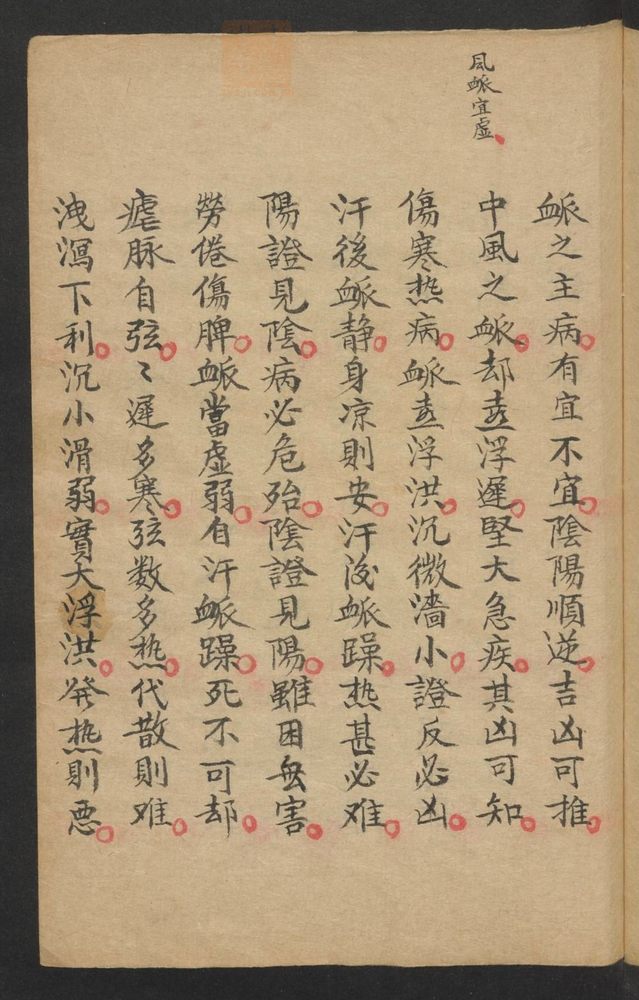 風衇宜虛
衇之主病有宜不宜陰陽順逆吉凶可推
中風之衇却㐂浮遲堅大急疾其凶可知
傷寒热病衇㐂浮洪沉微濇小證反必凶
汗後衇静身凉則安汗後衇躁热甚必难
陽證見陰病必危殆陰證見陽雖困無害
勞倦傷脾衇當虛弱自汗衇躁死不可却
瘧脉自弦〻遲多寒弦数多热代散則难
洩瀉下利沉小滑弱實大浮洪發热則惡